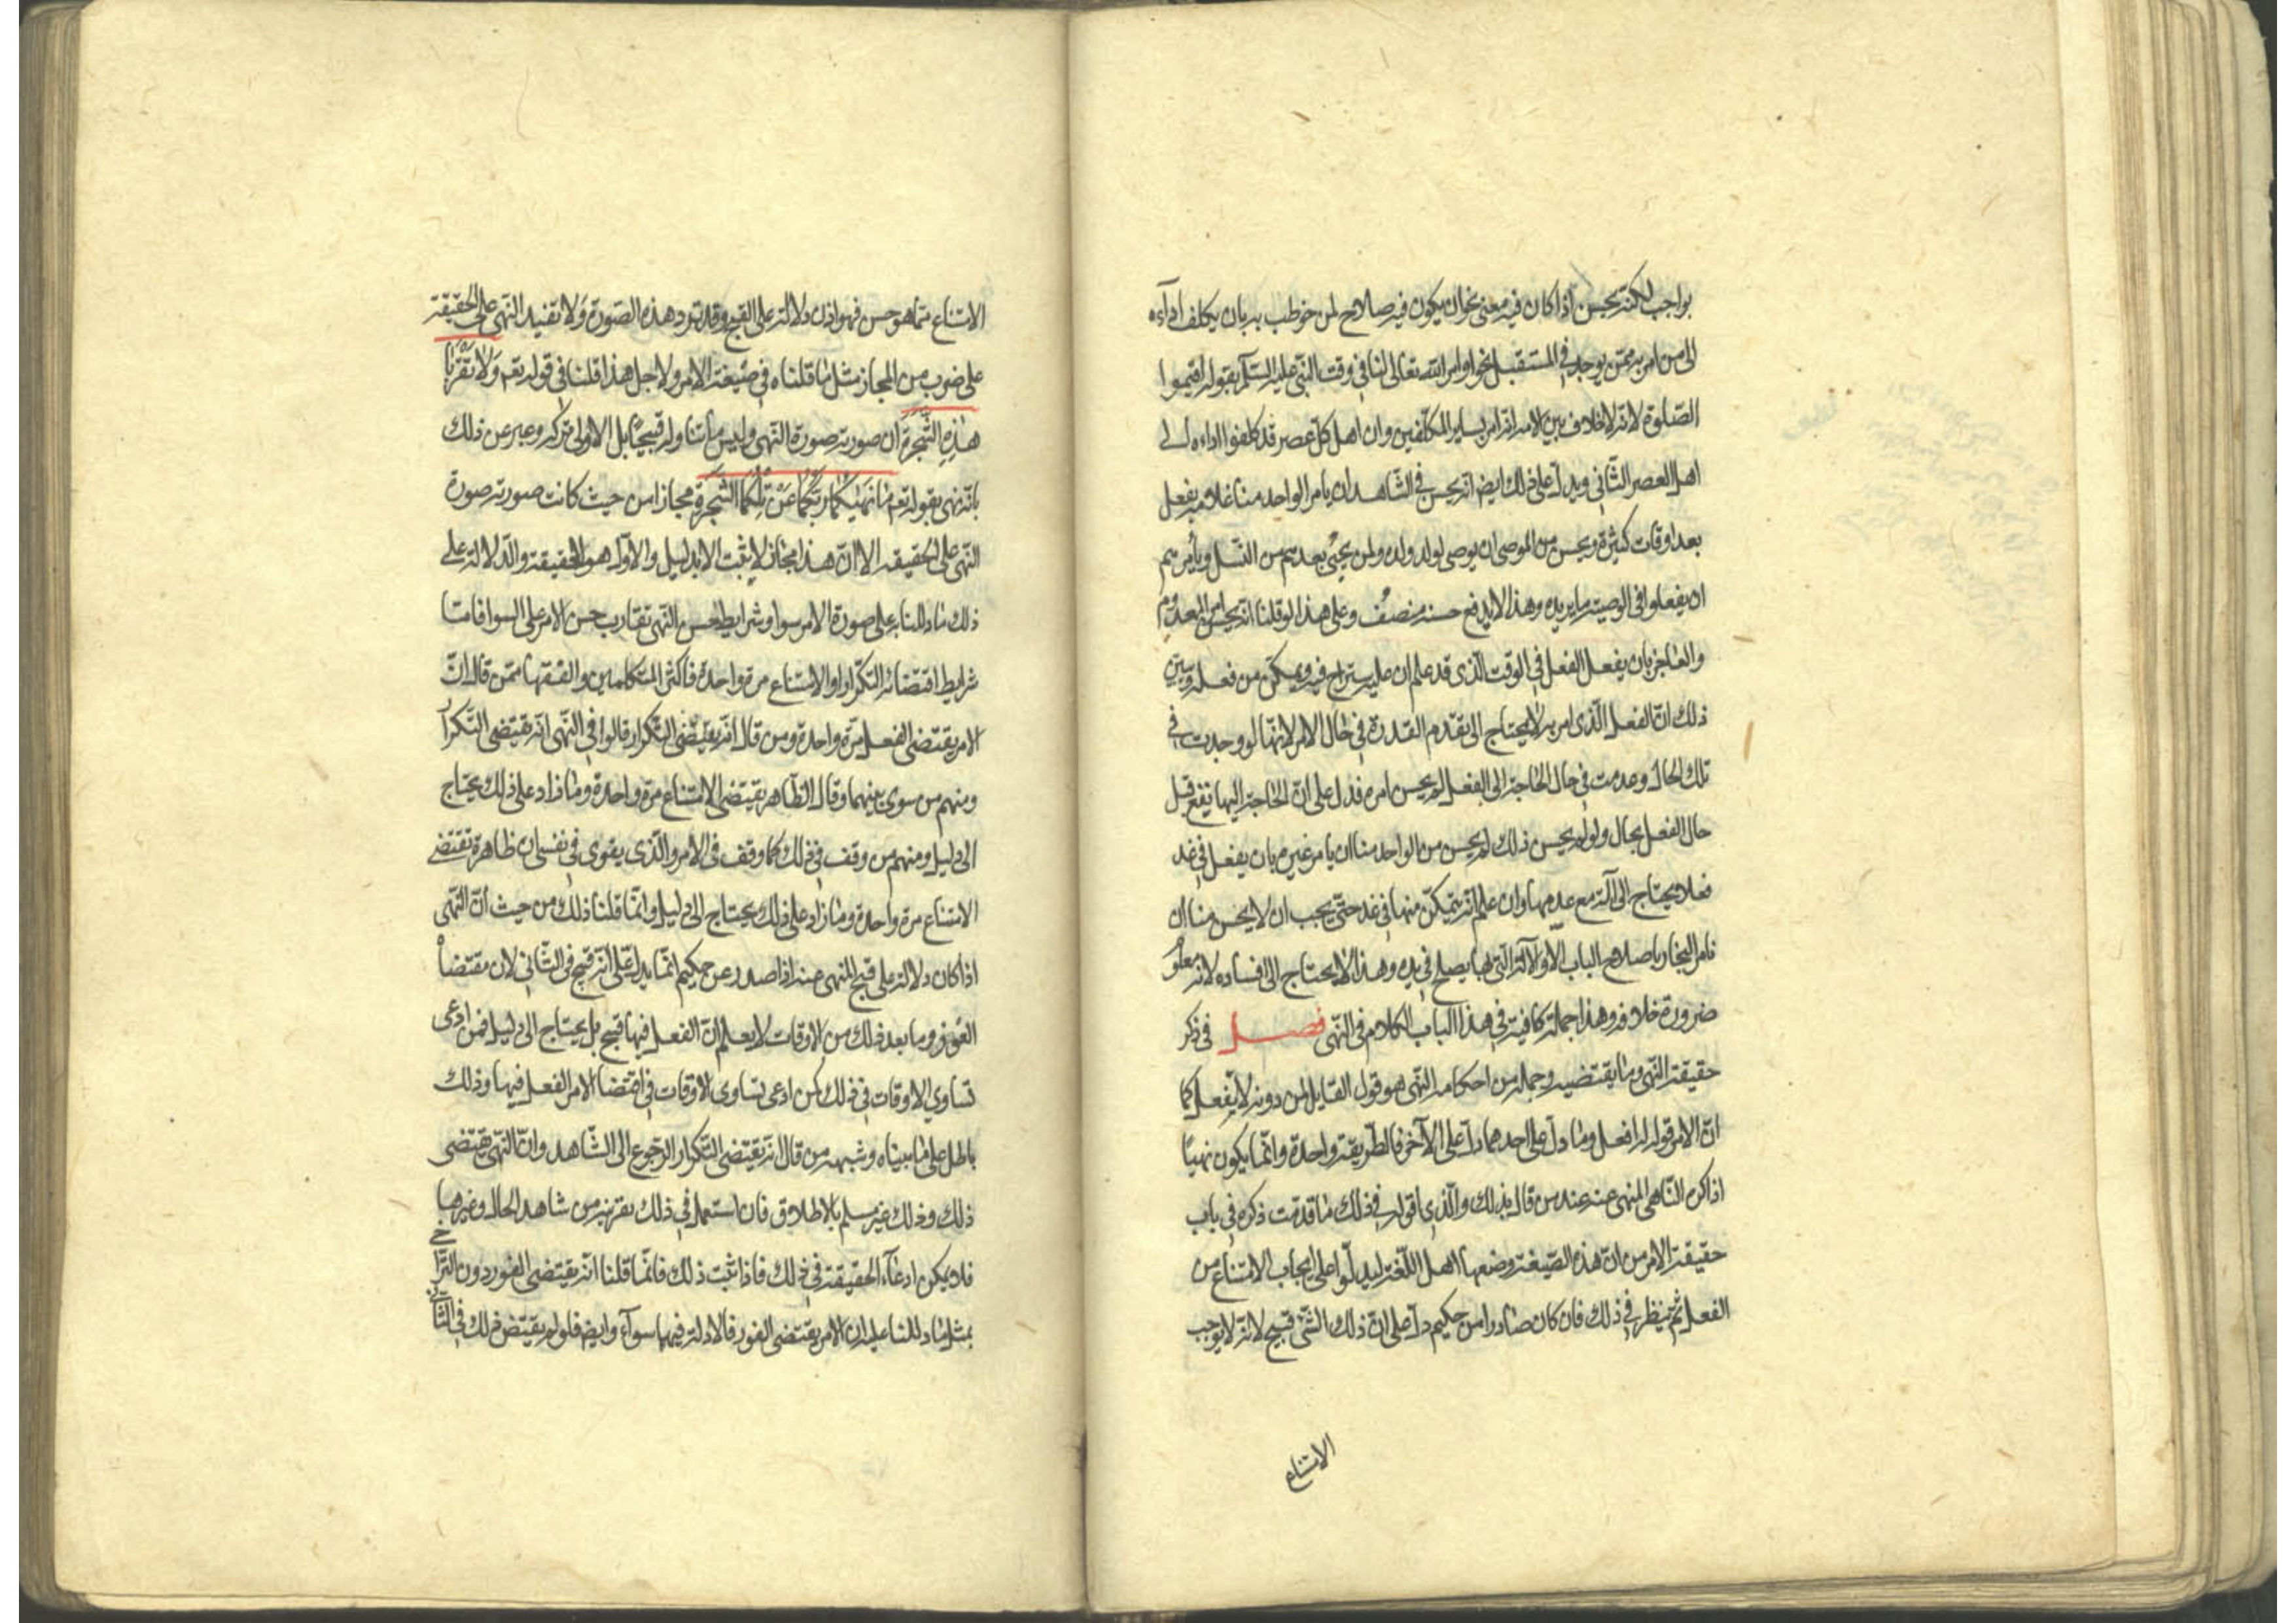 بواجب لكنه يحسن اذا كان فيه معنى نحو ان يكون فيه صلاح لمن خوطب به بان يكلف اداءه
الى من امر به ممن يوجد في المستقبل نحو اوامر الله تعالى لنا في وقت النبي عليه السلم بقوله اقيموا
الصلوة لانه لا خلاف بين الامة انه امر لساير المكلفين وان اهل كل عصر قد كلفوا اداءه الى
اهل العصر الثاني ويدل على ذلك ايض انه يحسن في الشاهد ان يامر الواحد منا غلامه بفعل
بعد اوقات كثيرة ويحسن من الموصى ان يوصى لولد ولده ولمن يجئ بعدهم من النسل ويأمرهم
ان يفعلوا في الوصية ما يريده وهذا لا يدفع حسنه منصف وعلى هذا لو قلنا انه يحسن امر المعدوم
والعاجز بان يفعل الفعل في الوقت الذى قد علم ان عليه ستزاح فيه ويمكن من فعله ويبين
ذلك ان الفعل الذى امر به لا يحتاج الى تقدم القدرة في حال الامر لانها لو وجدت في
تلك الحال وعدمت في حال الحاجة الى الفعل لم يحسن امره فدل على ان الحاجة اليها تقع قبل
حال الفعل بحال ولو لم يحسن ذلك لم يحسن من الواحد منا ان يامر غيره بان يفعل في غد
فعلا يحتاج الى آلة مع عدمها وان علم انه يتمكن منها في غد حتى يجب ان لا يحسن منا ان
نامر النجار باصلاح الباب الا والآلة التى بها يصلح في يده وهذا لا يحتاج الى افساده لانه معلوم
ضرورة خلافه وهذا جملة كافية في هذا الباب الكلام في النهى فصل في ذكر
حقيقة النهى وما يقتضيه وجملة من احكامه النهى هو قول القايل لمن دونه لا تفعل كما
ان الامر قوله له افعل وما دل على احدهما دل على الآخر فالطريقة واحدة وانما يكون نهيا
اذا كره الناهى المنهى عنه عند من قال بذلك والذى اقوله في ذلك ما قدمت ذكره في باب
حقيقة الامر من ان هذه الصيغة وضعها اهل اللغة ليدلوا على ايجاب الامتناع من
الفعل ثم ينظر في ذلك فان كان صادرا من حكيم دل على ان ذلك الشئ قبيح لانه لا يوجب
الامتناع
الامتناع مما هو حسن فهو اذن دلالة على القبح وقد ترد هذه الصورة ولا تفيد النهى على الحقيقة
على ضرب من المجاز مثل ما قلناه في صيغة الامر ولاجل هذا قلنا في قوله تعم وَلا تَقْرَبا
هٰذِهِ الشَّجَرَةَ ان صورته صورة النهى وليس ما تناوله قبيحا بل الاولى تركه وعبر عن ذلك
بانه نهى بقوله تعم مٰا نَهٰيكُمٰا رَبُّكُمٰا عَنْ تِلْكُمَا الشَّجَرَةِ مجازا من حيث كانت صورته صورة
النهى على الحقيقة الا ان هذا مجاز لا يثبت الا بدليل والاول هو الحقيقة والدلالة على
ذلك ما دللنا به على صورة الامر سوا وشرايط حسن النهى تقارب حسن الامر على السوا فاما
شرايط اقتضائه التكرار او الامتناع مرة واحدة فاكثر المتكلمين والفقها ممن قال ان
الامر يقتضى الفعل مرة واحدة ومن قال انه يقتضى التكرار قالوا في النهى انه يقتضى التكرار
ومنهم من سوى بينهما وقال الظاهر يقتضى الامتناع مرة واحدة وما زاد على ذلك يحتاج
الى دليل ومنهم من وقف في ذلك كما وقف في الامر والذى يقوى في نفسى ان ظاهره تقتضى
الامتناع مرة واحدة وما زاد على ذلك يحتاج الى دليل وانما قلنا ذلك من حيث ان النهى
اذا كان دلالة على قبح المنهى عنه اذا صدر عن حكيم انما يدل على انه قبيح في الثاني لان مقتضاه
الفور وما بعد ذلك من الاوقات لا يعلم ان الفعل فيها قبيح بل يحتاج الى دليل فمن ادعى
تساوي الاوقات في ذلك كمن ادعى تساوى الاوقات في اقتضا الامر الفعل فيها وذلك
باطل على ما بيناه وشبهة من قال انه يقتضى التكرار الرجوع الى الشاهد وان النهى يقتضى
ذلك وذلك غير مسلم بالاطلاق فان استعمل في ذلك بقرينة من شاهد الحال وغيرها
فلا يمكن ادعاء الحقيقة في ذلك فاذا ثبت ذلك فانما قلنا انه يقتضى الفور دون التراخي
بمثل ما دللنا عليه ان الامر يقتضى الفور فالادلة فيها سواء وايض فلو لم يقتض ذلك في الثاني